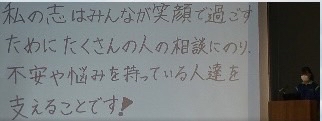 私の志はみんなが笑顔で過ごす
ためにたくさんの人の相談にのり、
不安や悩みを持っている人達を
支えることです!